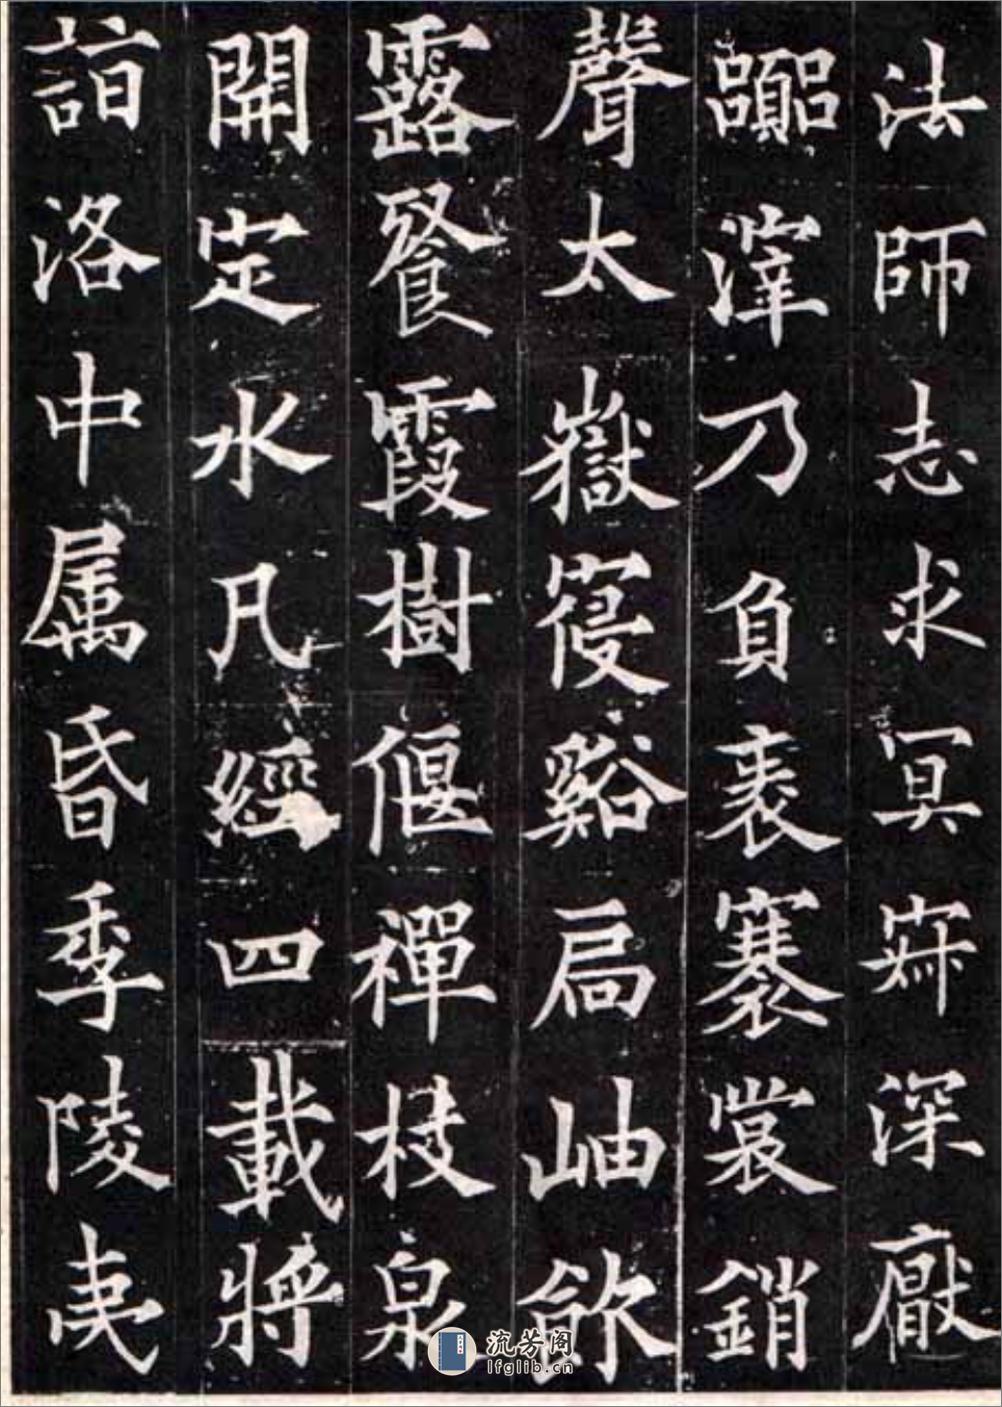 法師志求冥寂深厭
嚻滓乃負袠褰裳銷
聲太嶽寢谿扃岫飲
露餐霞樹偃禪枝泉
開定水凡經四載將
詣洛中属昏季陵夷
流芳阁
lfglib.cn